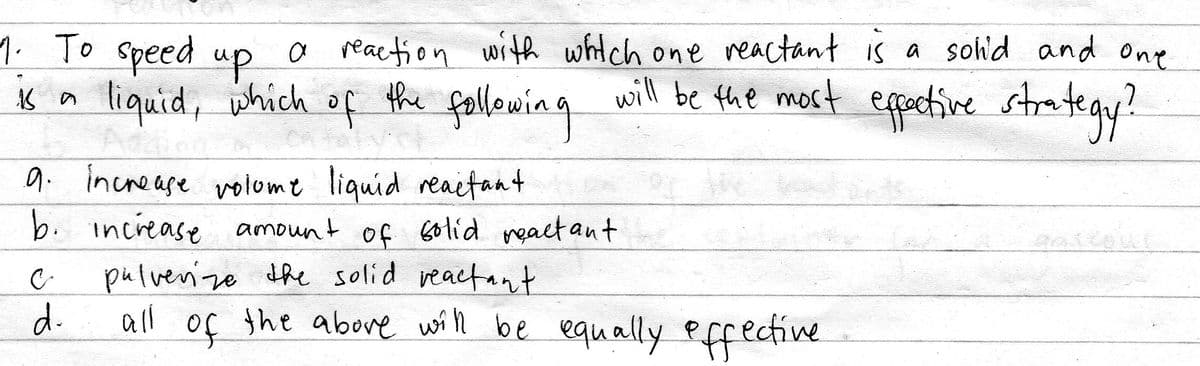 1. To speed up a reaction with which one reactant is a solid and one
is a liquid, which of the following will be the most effective strategy?
a. increase volume liquid reactant
b. increase amount of solid reactant
c. pulverize the solid reactant
d. all of the above will be equally effective